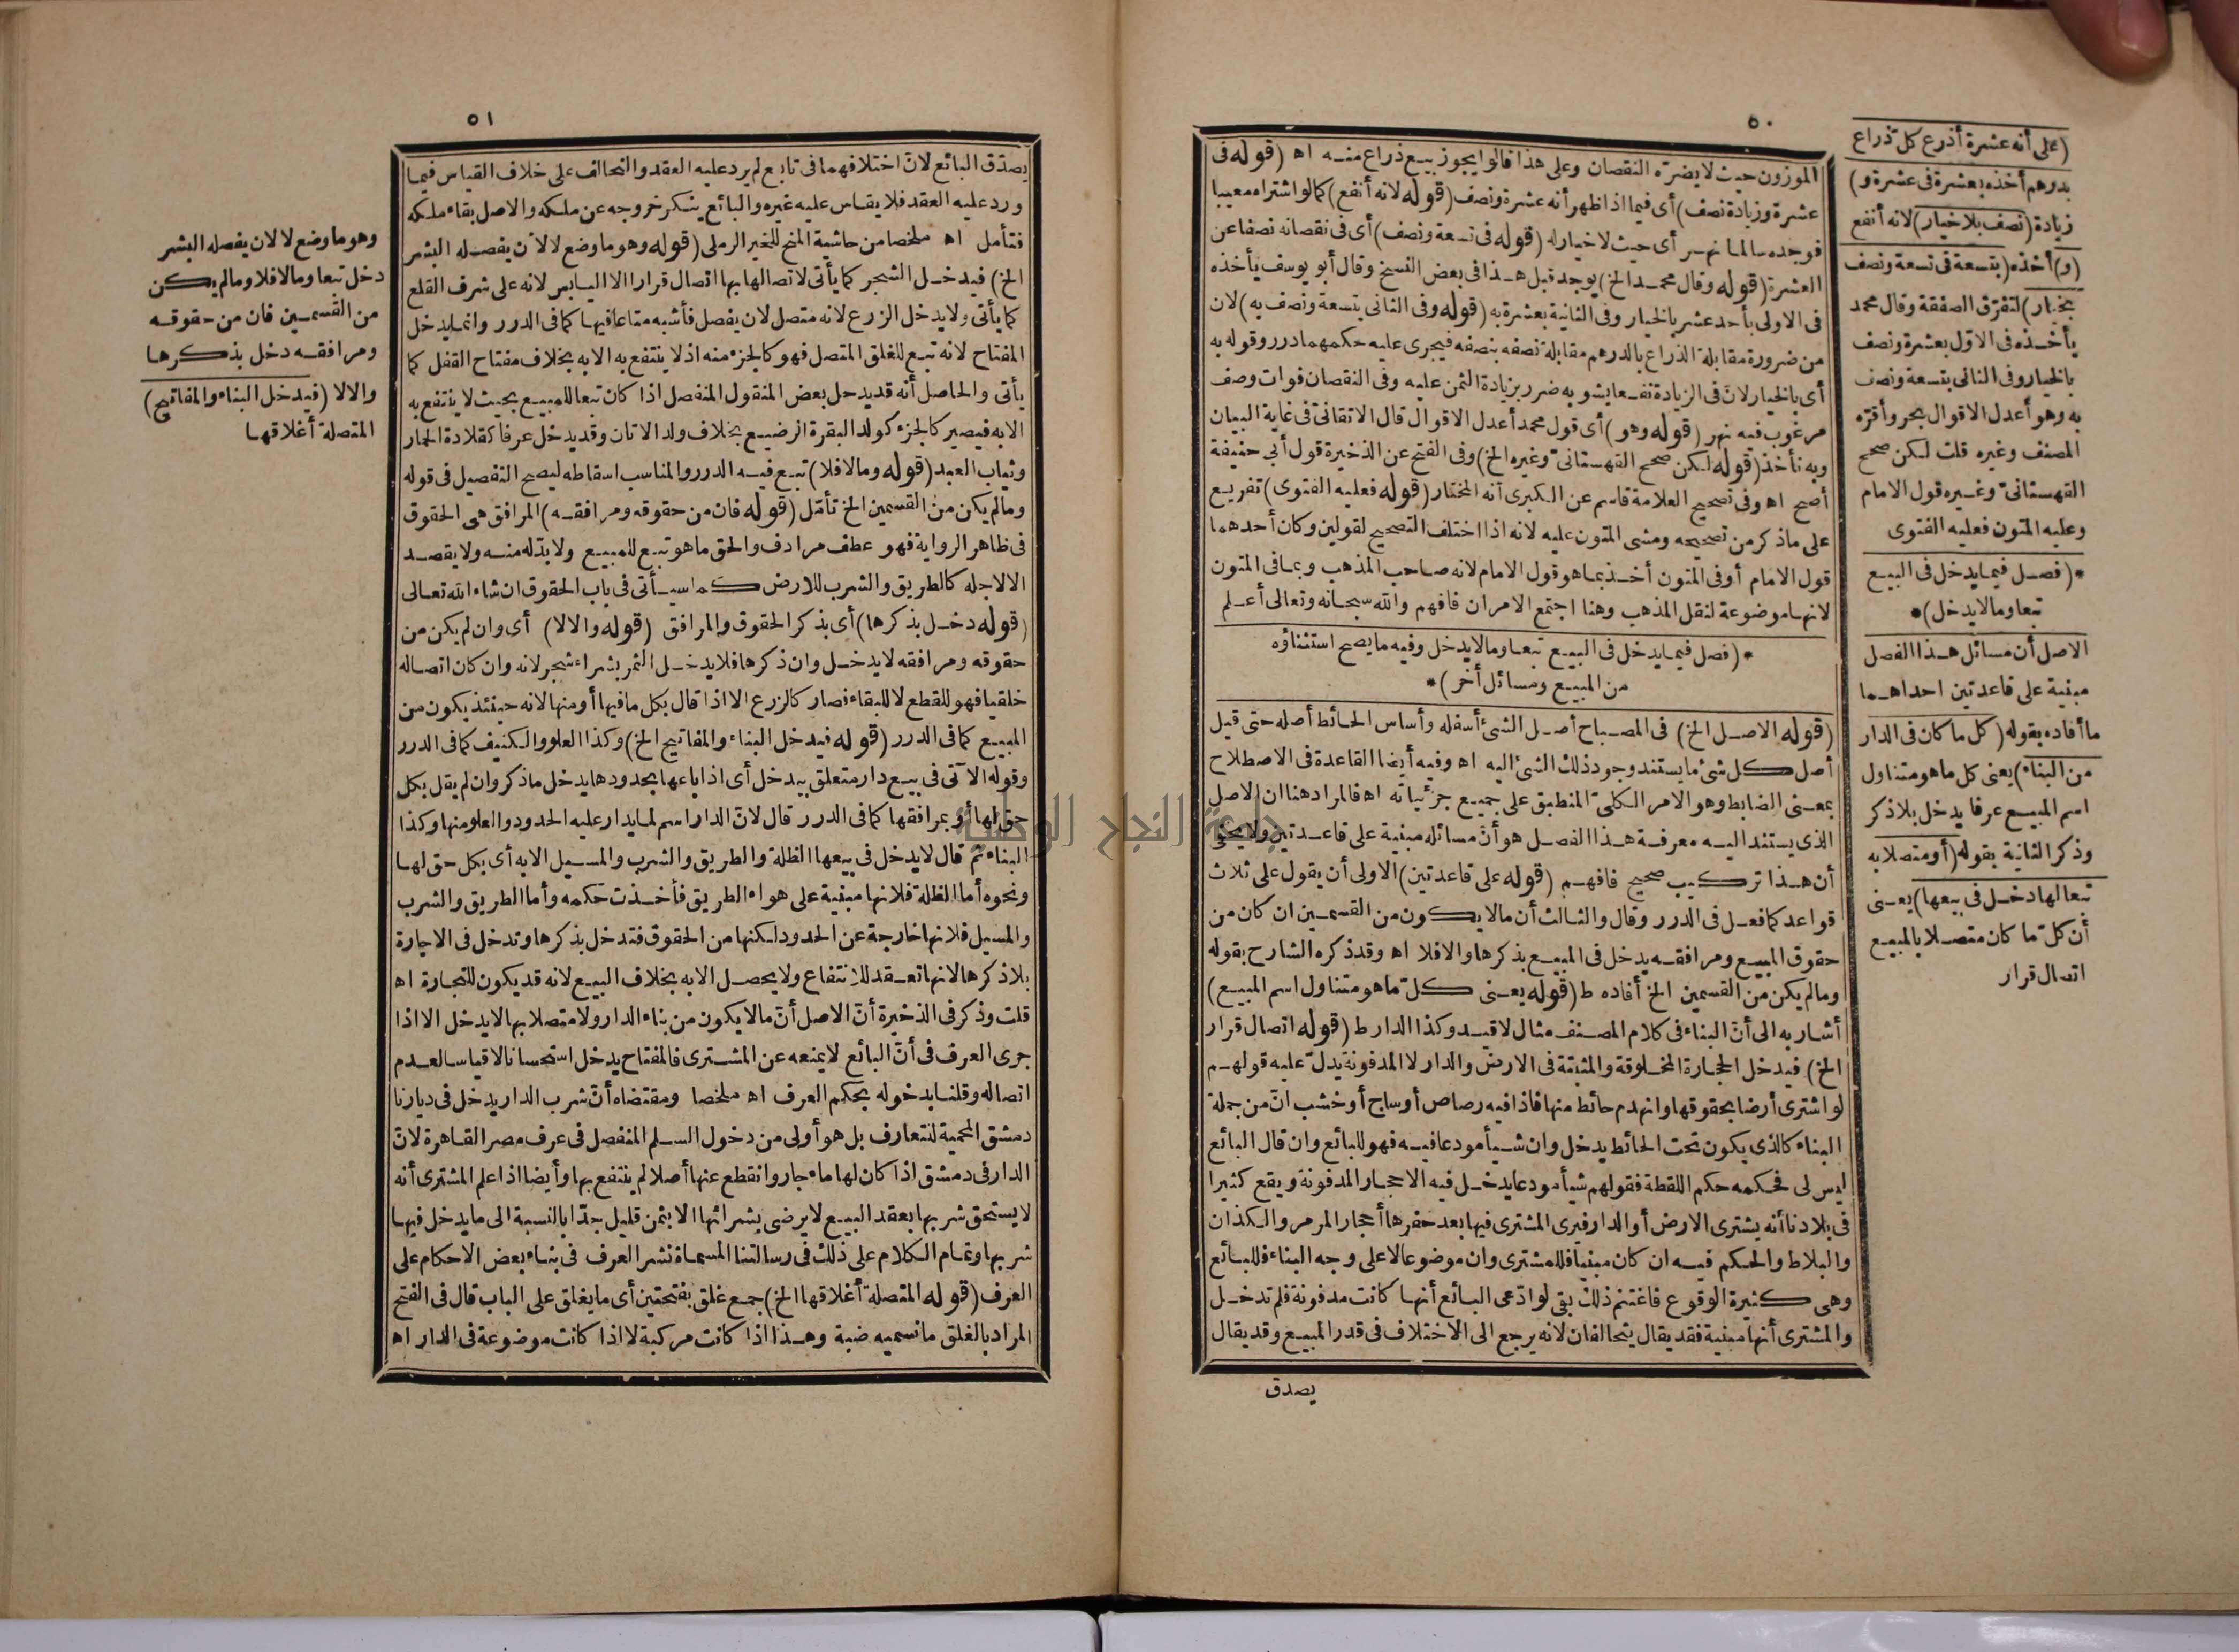 ٥٠
(على أنه عشرة أذرع كل ذراع
بدرهم أخذه بعشرة فى عشرة و)
زيادة (نصف بلا خيار) لانه أنفع
(و) أخذه (بتسعة فى تسعة ونصف
بخيار) لتفرق الصفقة وقال محمد
يأخذه فى الاول بعشرة ونصف
بالخيار وفى الثانى بتسعة ونصف
به وهو أعدل الاقوال بحر وأقره
المصنف وغيره قلت لكن صحح
القهستانى وغيره قول الامام
وعليه المتون فعليه الفتوى
*(فصل فيما يدخل فى البيع
تبعا وما لا يدخل)*
الاصل أن مسائل هذا الفصل
مبنية على قاعدتين احداهما
ما أفاده بقوله (كل ما كان فى الدار
من البناء) يعنى كل ما هو متناول
اسم المبيع عرفا يدخل بلا ذكر
وذكر الثانية بقوله (أو متصلا به
تبعا لها دخل فى بيعها) يعنى
أن كل ما كان متصلا بالمبيع
اتصال قرار
الموزون حيث لا يضره النقصان وعلى هذا قالوا يجوز بيع ذراع منه اه (قوله فى
عشرة وزيادة نصف) أى فيما اذا ظهر أنه عشرة ونصف (قوله لانه أنفع) كما لو اشتراه معيبا
فوجده سالما نهر أى حيث لا خيار له (قوله فى تسعة ونصف) أى فى نقصانه نصفا عن
العشرة (قوله وقال محمد الخ) يوجد قبل هذا فى بعض النسخ وقال أبو يوسف يأخذه
فى الاولى بأحد عشر بالخيار وفى الثانية بعشرة به (قوله وفى الثانى بتسعة ونصف به) لان
من ضرورة مقابلة الذراع بالدرهم مقابلة نصفه بنصفه فيجرى عليه حكمهما درر وقوله به
أى بالخيار لان فى الزيادة نفعا يشوبه ضرر بزيادة الثمن عليه وفى النقصان فوات وصف
مرغوب فيه نهر (قوله وهو) أى قول محمد أعدل الاقوال قال الاتقانى فى غاية البيان
وبه نأخذ (قوله لكن صحح القهستانى وغيره الخ) وفى الفتح عن الذخيرة قول أبى حنيفة
أصح اه وفى تصحيح العلامة قاسم عن الكبرى أنه المختار (قوله فعليه الفتوى) تفريع
على ما ذكر من تصحيحه ومشى المتون عليه لانه اذا اختلف التصحيح لقولين وكان أحدهما
قول الامام أو فى المتون أخذ بما هو قول الامام لانه صاحب المذهب وبما فى المتون
لانها موضوعة لنقل المذهب وهنا اجتمع الامران فافهم والله سبحانه وتعالى أعلم
*(فصل فيما يدخل فى البيع تبعا وما لا يدخل وفيه ما يصح استثناؤه
من المبيع ومسائل أخر)*
(قوله الاصل الخ) فى المصباح أصل الشئ أسفله وأساس الحائط أصله حتى قيل
أصل كل شئ ما يستند وجود ذلك الشئ اليه اه وفيه أيضا القاعدة فى الاصطلاح
بمعنى الضابط وهو الامر الكلى المنطبق على جميع جزئياته اه فالمراد هنا ان الاصل
الذى يستند اليه معرفة هذا الفصل هو أن مسائله مبنية على قاعدتين ولا يخفى
أن هذا تركيب صحيح فافهم (قوله على قاعدتين) الاولى أن يقول على ثلاث
قواعد كما فعل فى الدرر وقال والثالث أن ما لا يكون من القسمين ان كان من
حقوق المبيع ومرافقه يدخل فى المبيع بذكرها والا فلا اه وقد ذكره الشارح بقوله
وما لم يكن من القسمين الخ أفاده ط (قوله يعنى كل ما هو متناول اسم المبيع)
أشار به الى أن البناء فى كلام المصنف مثال لا قيد وكذا الدار ط (قوله اتصال قرار
الخ) فيدخل الحجارة المخلوقة والمثبتة فى الارض والدار لا المدفونة يدل عليه قولهم
لو اشترى أرضا بحقوقها وانهدم حائط منها فاذا فيه رصاص أو ساج أو خشب ان من جملة
البناء كالذى يكون تحت الحائط يدخل وان شيأ مودعا فيه فهو للبائع وان قال البائع
ليس لى فحكمه حكم اللقطة فقولهم شيأ مودعا يدخل فيه الاحجار المدفونة ويقع كثيرا
فى بلادنا أنه يشترى الارض أو الدار فيرى المشترى فيها بعد حفرها أحجار المرمر والكذان
والبلاط والحكم فيه ان كان مبنيا فللمشترى وان موضوعا لا على وجه البناء فللبائع
وهى كثيرة الوقوع فاغتنم ذلك بقى لو ادعى البائع أنها كانت مدفونة فلم تدخل
والمشترى أنها مبنية فقد يقال يتحالفان لانه يرجع الى الاختلاف فى قدر المبيع وقد يقال
يصدق
٥١
يصدق البائع لان اختلافهما فى تابع لم يرد عليه العقد والتحالف على خلاف القياس فيما
ورد عليه العقد فلا يقاس عليه غيره والبائع ينكر خروجه عن ملكه والاصل بقاء ملكه
فتأمل اه ملخصا من حاشية المنح للخير الرملى (قوله وهو ما وضع لا لأن يفصله البشر
الخ) فيدخل الشجر كما يأتى لاتصالها بها اتصال قرار الا اليابس لانه على شرف القلع
كما يأتى ولا يدخل الزرع لانه متصل لان يفصل فأشبه متاعا فيها كما فى الدرر وانما يدخل
المفتاح لانه تبع للغلق المتصل فهو كالجزء منه اذ لا ينتفع به الا به بخلاف مفتاح القفل كما
يأتى والحاصل أنه قد يدخل بعض المنقول المنفصل اذا كان تبعا للمبيع بحيث لا ينتفع به
الا به فيصير كالجزء كولد البقرة الرضيع بخلاف ولد الاتان وقد يدخل عرفا كقلادة الحمار
وثياب العبد (قوله وما لا فلا) تبع فيه الدرر والمناسب اسقاطه ليصح التفصيل فى قوله
وما لم يكن من القسمين الخ تأمل (قوله فان من حقوقه ومرافقه) المرافق هى الحقوق
فى ظاهر الرواية فهو عطف مرادف والحق ما هو تبع للمبيع ولا بد له منه ولا يقصد
الا لاجله كالطريق والشرب للارض كما سيأتى فى باب الحقوق ان شاء الله تعالى
(قوله دخل بذكرها) أى بذكر الحقوق والمرافق (قوله والا لا) أى وان لم يكن من
حقوقه ومرافقه لا يدخل وان ذكرها فلا يدخل الثمر بشراء شجر لانه وان كان اتصاله
خلقيا فهو للقطع لا للبقاء فصار كالزرع الا اذا قال بكل ما فيها أو منها لانه حينئذ يكون من
المبيع كما فى الدرر (قوله فيدخل البناء والمفاتيح الخ) وكذا العلو والكنيف كما فى الدرر
وقوله الآتى فى بيع دار متعلق بيدخل أى اذا باعها بحدودها يدخل ما ذكر وان لم يقل بكل
حق لها أو بمرافقها كما فى الدرر قال لان الدار اسم لما يدار عليه الحدود والعلو منها وكذا
البناء ثم قال لا يدخل فى بيعها الظلة والطريق والشرب والمسيل الا به أى بكل حق لها
ونحوه أما الظلة فلانها مبنية على هواء الطريق فأخذت حكمه وأما الطريق والشرب
والمسيل فلانها خارجة عن الحدود لكنها من الحقوق فتدخل بذكرها وتدخل فى الاجارة
بلا ذكرها لانها تعقد للانتفاع ولا يحصل الا به بخلاف البيع لانه قد يكون للتجارة اه
قلت وذكر فى الذخيرة أن الاصل أن ما لا يكون من بناء الدار ولا متصلا بها لا يدخل الا اذا
جرى العرف فى أن البائع لا يمنعه عن المشترى فالمفتاح يدخل استحسانا لا قياسا لعدم
اتصاله وقلنا بدخوله بحكم العرف اه ملخصا ومقتضاه أن شرب الدار يدخل فى ديارنا
دمشق المحمية للتعارف بل هو أولى من دخول السلم المنفصل فى عرف مصر القاهرة لان
الدار فى دمشق اذا كان لها ماء جار وانقطع عنها أصلا لم ينتفع بها وأيضا اذا علم المشترى أنه
لا يستحق شربها بعقد البيع لا يرضى بشرائها الا بثمن قليل جدا بالنسبة الى ما يدخل فيها
شربها وتمام الكلام على ذلك فى رسالتنا المسماة نشر العرف فى بناء بعض الاحكام على
العرف (قوله المتصلة أغلاقها الخ) جمع غلق بفتحتين أى ما يغلق على الباب قال فى الفتح
المراد بالغلق ما نسميه ضبة وهذا اذا كانت مركبة لا اذا كانت موضوعة فى الدار اه
وهو ما وضع لا لان يفصله البشر
دخل تبعا وما لا فلا وما لم يكن
من القسمين فان من حقوقه
ومرافقه دخل بذكرها
والا لا (فيدخل البناء والمفاتيح)
المتصلة أغلاقها
جامعة النجاح الوطنية